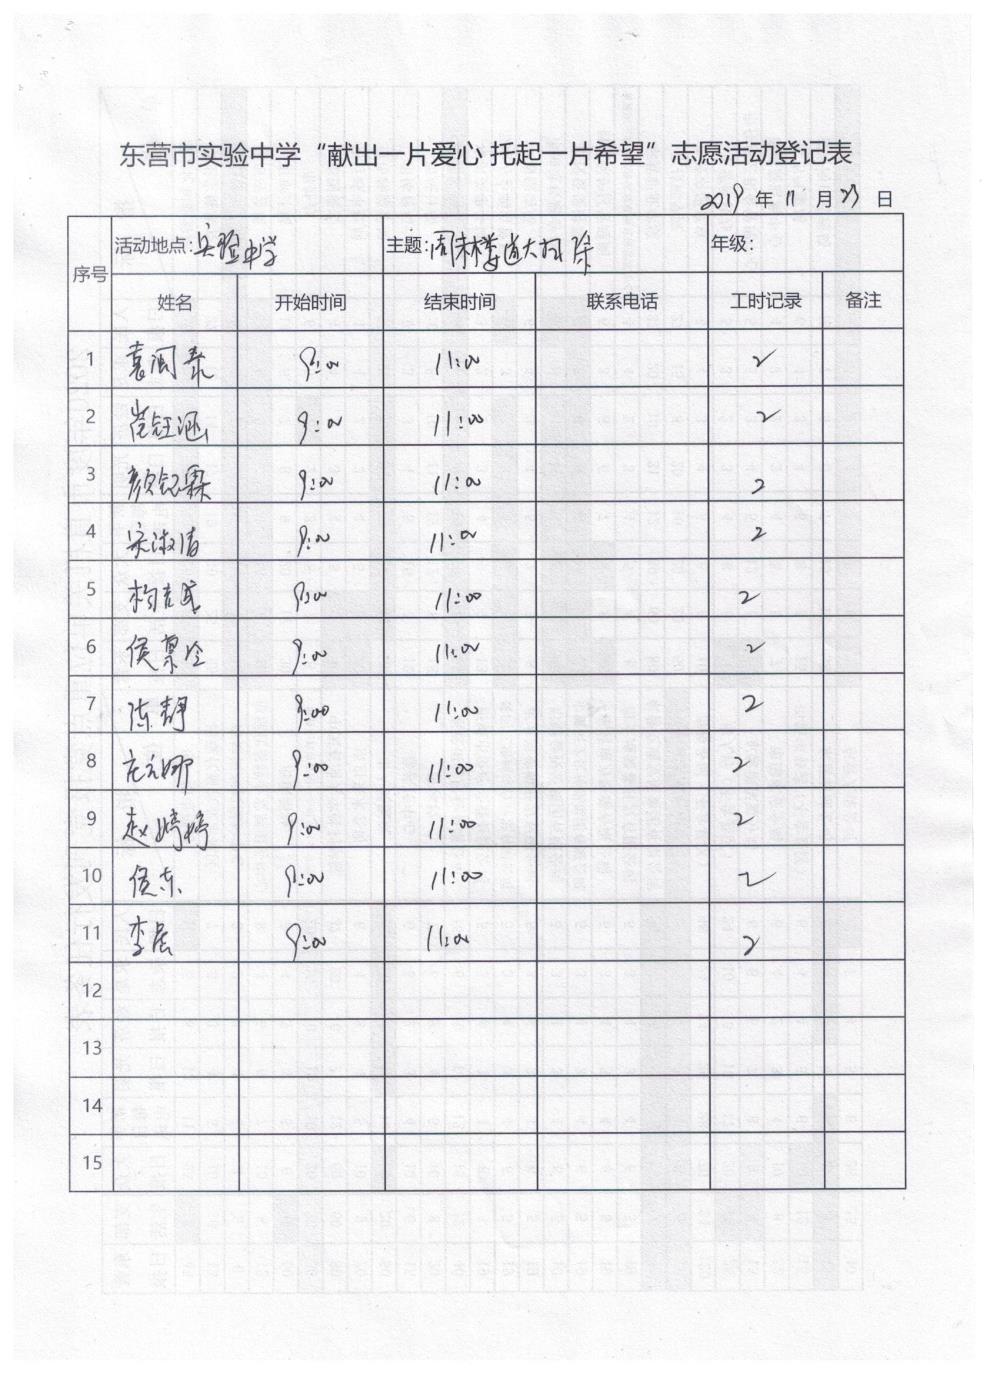 东营市实验中学“献出一片爱心 托起一片希望”志愿活动登记表
2019 年 11 月 23 日
序号 活动地点:实验中学 主题:周末楼道大扫除 年级:
姓名 开始时间 结束时间 联系电话 工时记录 备注
1 袁闽泰 9:00 11:00 2
2 范钰涵 9:00 11:00 2
3 颜铭霖 9:00 11:00 2
4 宋淑清 9:00 11:00 2
5 9:00 11:00 2
6 侯景 9:00 11:00 2
7 陈静 9:00 11:00 2
8 9:00 11:00 2
9 赵婷婷 9:00 11:00 2
10 侯东 9:00 11:00 2
11 李晨 9:00 11:00 2
12
13
14
15